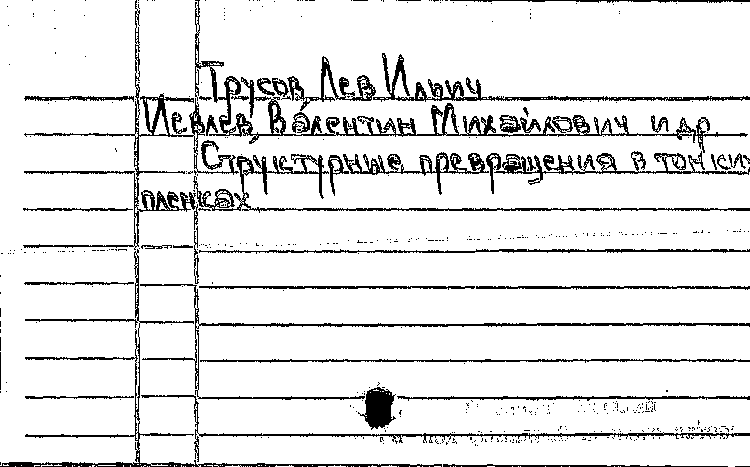 Трусов Лев Ильич
Иевлев Валентин Михайлович и др.
Структурные превращения в тонких
пленках